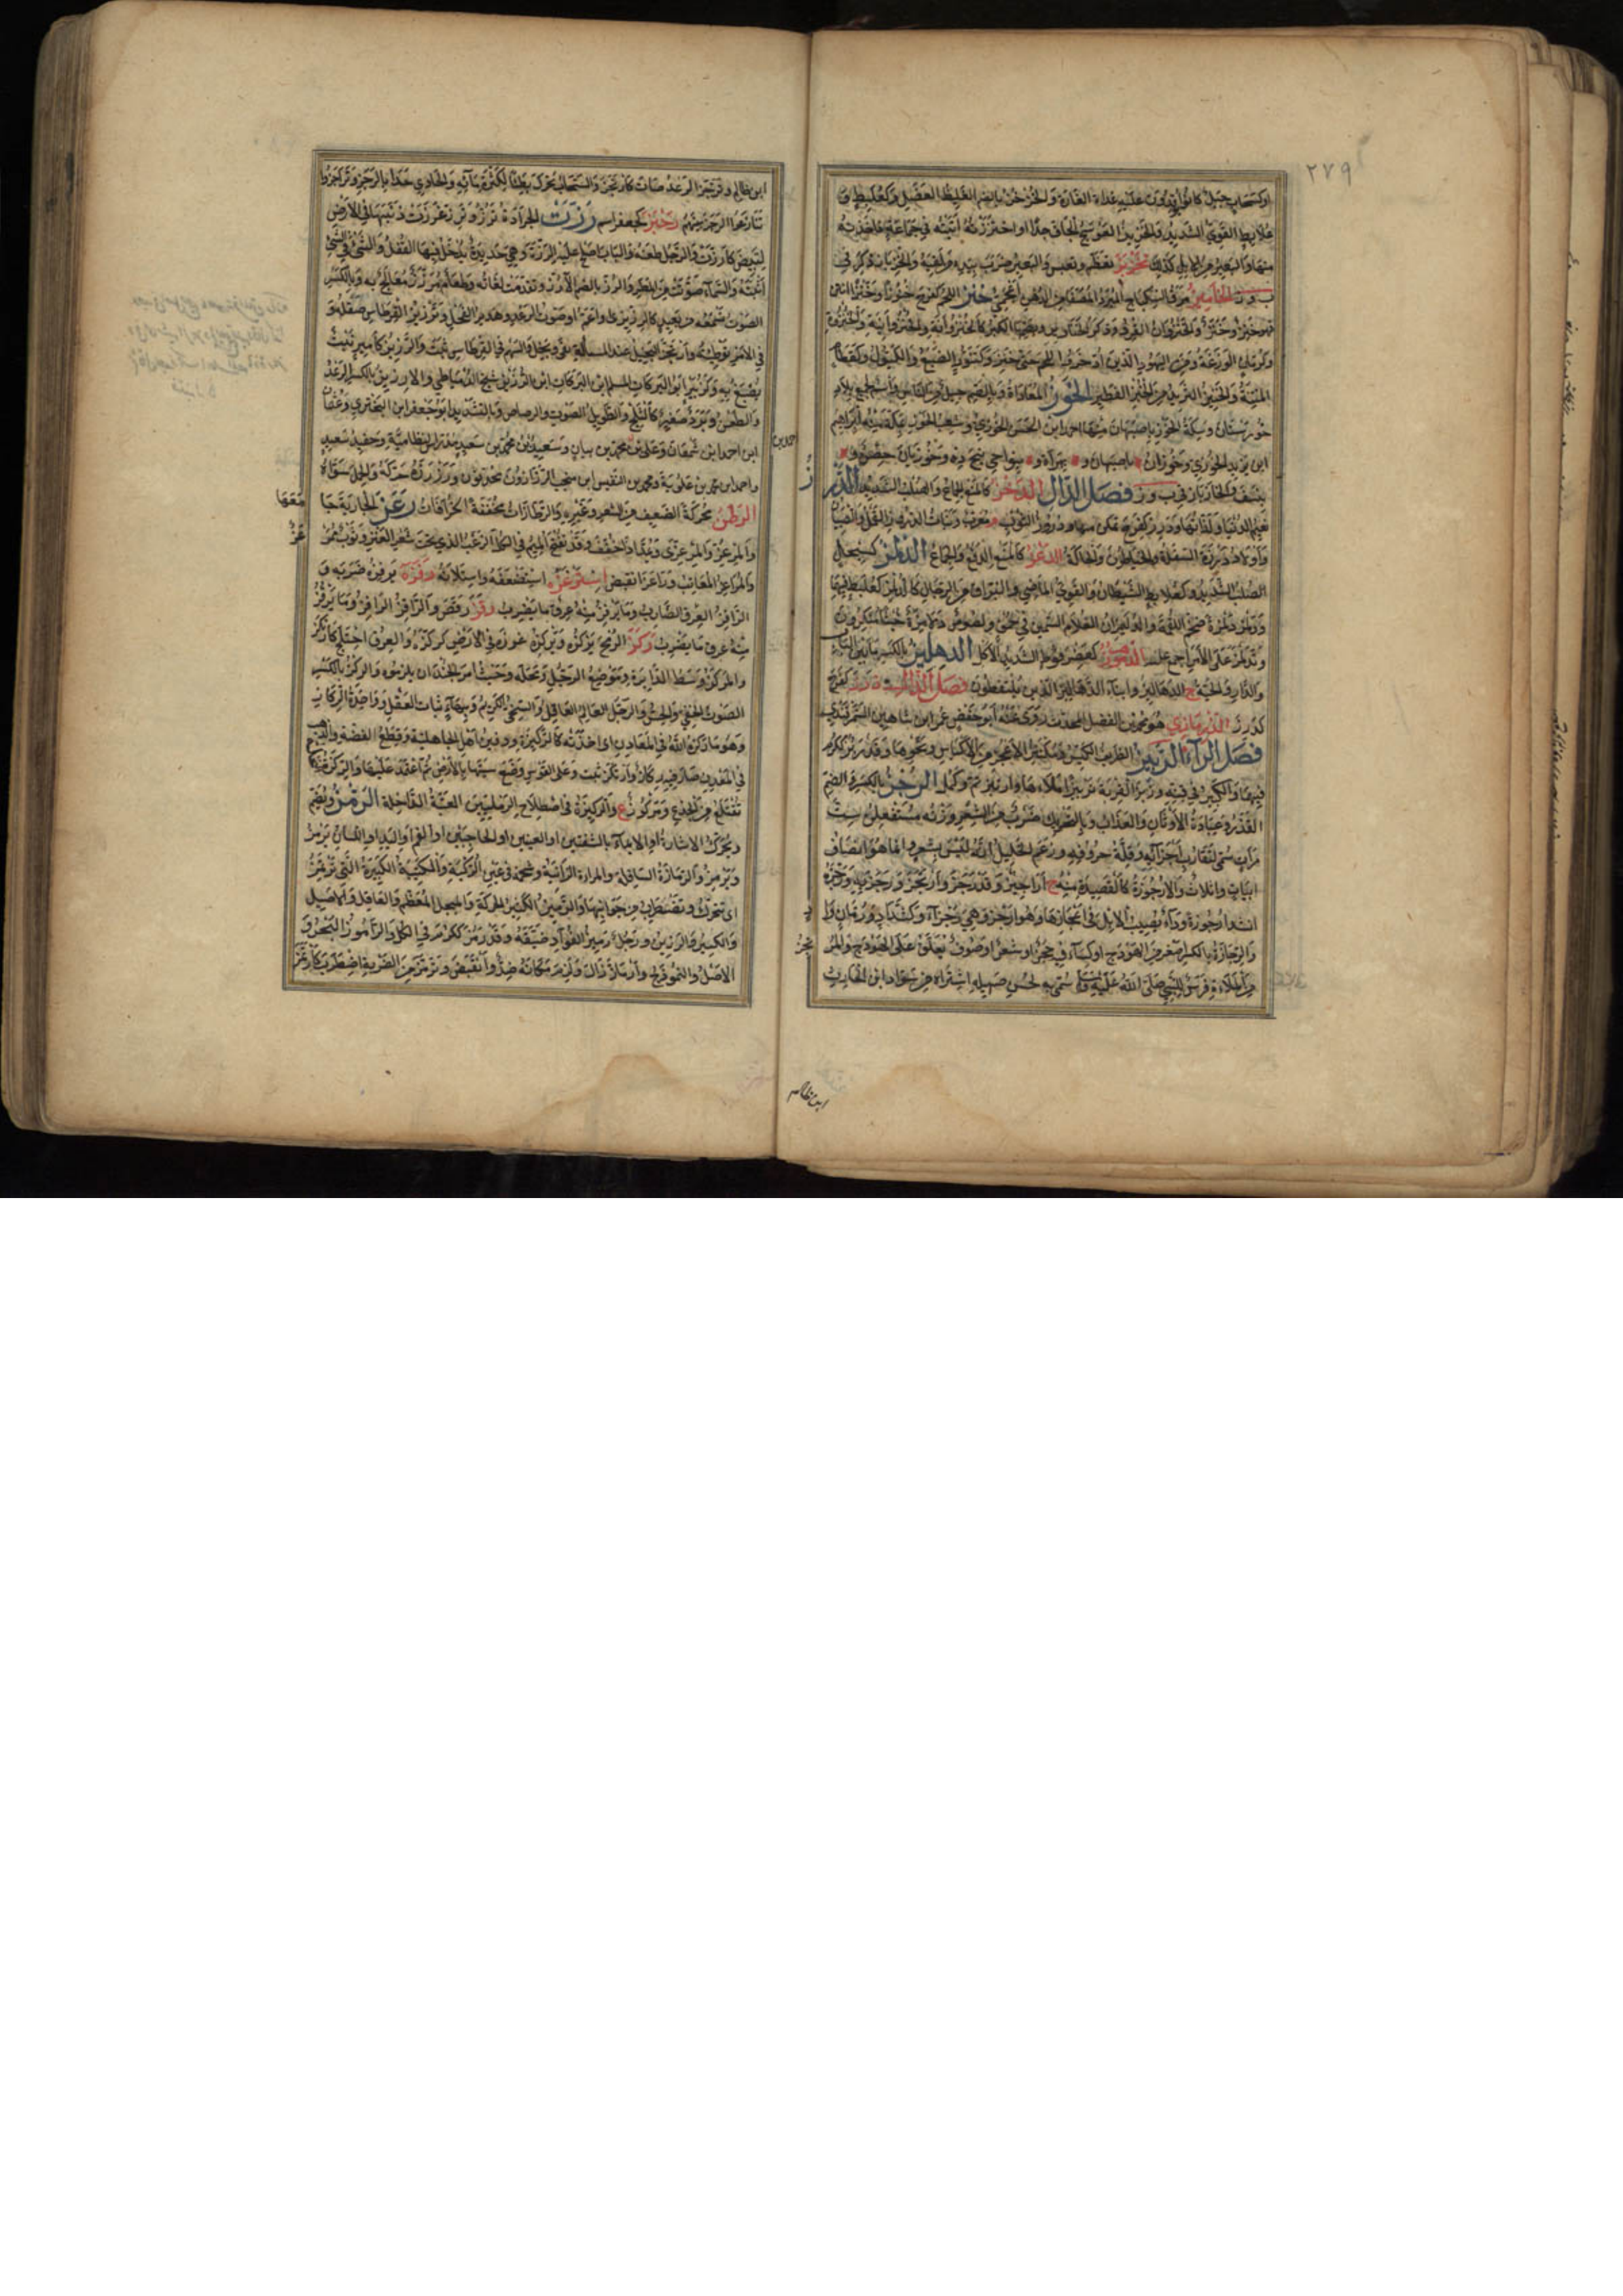 ٢٧٩
او كسحاب جبل كانوا يوقدون عليه غداة الغارة والخزخز بالضم الغليظ العضل وكعلبط و
علابط القوي الشديد والخزيز العوسج الجاف جدا او اختززته اتيته في جماعة فاخذته
منها والبعير من الابل كذلك تعظم وتعبس والبعير ضرب بيديه ولقيه والخزباز ذكر في
ب و ز الخاميز مرق السكباج المبرد المصفى من الدهن اعجمي خنز اللحم كفرح خنوزا وخنزا انتن
فهو خنز وخنز والخنزوان القرد وذكر الخنازير وبضمها الكبر كالخنزوانة والخنزوانية والخنزوة
وكرمان الوزغة ومن اليهود الذين ادخروا اللحم حتى خنز وكتنور الضبع والكيول وكقطام
المنتنة والخنيز الثريد من الخبز الفطير الخوز المعاداة وبالضم جيل من الناس واسم لجميع بلاد
خوزستان وسكة الخوز باصبهان منها احمد ابن الحسن الخوزي وشعب الخوز بمكة منه ابراهيم
ابن يزيد الخوزي وخوزان ة باصبهان و ة بهراة و ة بنواحي پنج ده وخوزيان حصن و ة
بنسف والخازباز في ب و ز فصل الدال الدحز كالمنع الجماع والعنبث الشديد الدرز
نعيم الدنيا ولذاتها ودرز كفرح تمكن منها ودروز الثوب م معرب وبنات الدروز القمل والصئبان
واولاد درزة السفلة والخياطون والحاكة الدعز كالمنع الدفع والجماع الدلمز كسبحل
الصلب الشديد وكعلابط الشيطان والقوي الماضي والبراق من الرجال كالدلمز كعلبط فيهما
ودلمز دلمزة ضخم اللقمة
وتدلمز على الامر اجمع عليه الدهموز كعضرفوط الشديد الاكل الدهليز بالكسر ما بين الباب
والدار والحنية ج الدهاليز وابناء الدهاليز الذين يلتقطون فصل الذال ذرز كفرح
كدرز الذرمازي هو محمد بن الفضل المحدث روى عنه ابو حفص عمر ابن شاهين السمرقندي
فصل الراء الربيز الظريف الكيس والمكتنز الاعجز من الاكباش ونحوها وقد ربز ككرم
فيهما والكبير في فنه وربز القربة تربيزا ملأها وارتبز تم وكمل الرجز بالكسر والضم
القذر وعبادة الاوثان والعذاب وبالتحريك ضرب من الشعر وزنه مستفعلن ست
مرات سمي لتقارب اجزائه وقلة حروفه وزعم الخليل انه ليس بشعر وانما هو انصاف
ابيات واثلاث والارجوزة كالقصيدة منه ج اراجيز وقد رجز وارتجز ورجز به ورجزه
انشده ارجوزة وداء يصيب الابل في اعجازها وهو ارجز وهي رجزاء وكشداد ورمان واد
والرجازة بالكسر اصغر من الهودج او كساء فيه حجر او شعر او صوف يعلق على الهودج والمر
تجز
من الملاءة فرس للنبي صلى الله عليه وسلم سمي به لحسن صهيله اشتراه من سواد ابن الحارث
ابن ظالم
ابن ظالم وترجز الرعد صات كارتجز والسحاب تحرك بطيئا لكثرة مائه والحادي حدا بالرجز وتراجزوا
تنازعوا الرجز بينهم رحبز كجعفر اسم رزت الجرادة ترز وترز غرزت ذنبها في الارض
لتبيض كارزت والرجل طعنه والباب اصلح عليه الرزة وهي حديدة يدخل فيها القفل والشيء في الشيء
اثبته والسماء صوتت من المطر والرز بالضم الارز وتقدمت لغاته وطعام مرزز معالج به وبالكسر
الصوت تسمعه من بعيد كالرزيزى او اعم او صوت الرعد وهدير الفحل وترزيز القرطاس صقله و
في الامر توطئته وارتز البخيل عند المسألة بقي وبخل والسهم في القرطاس ثبت والرزيز كامير نبت
يصبغ به وكزبير ابو البركات المسلم ابن البركات ابن الرزيز شيخ الدمياطي والارزيز بالكسر الرعدة
والطعن وبرد صغير كالثلج والطويل الصوت والرصاص وبالتشديد ابو جعفر ابن البختري وعثمان
احمد بن
ابن احمد ابن شمعان وعلى بن محمد بن بيان وسعيد بن محمد بن سعيد مدرس النظامية وحفيده سعيد
واحمد ابن محمد بن علوية ومحمد بن النفيس ابن منجب الرزازون محدثون ورزرزه حركه والحمل سواه
الرطز محركة الضعيف من الشعر وغيره والرطازات مخففة الخرافات رعز الجارية جا
معها
والمرعز والمرعزى ويمد اذا خفف وقد تفتح الميم في الكل الزغب الذي تحت شعر العنز وثوب ممر
عز
والمراعز المعاتب وراعز انقبض استرغزه استضعفه واستلانه رفزه يرفزه ضربه و
الرافز العرق الضارب وما يرفز منه عرق ما يضرب رقز رقص والراقز الرافز وما يرقز
منه عرق ما يضرب ركز الرمح يركزه ويركزه غرزه في الارض كركزه والعرق اختلج كارتكز
والمركز وسط الدائرة وموضع الرجل ومحله وحيث امر الجند ان يلزموه والركز بالكسر
الصوت الخفي والحس والرجل العالم العاقل السخي الكريم وبهاء ثبات العقل وواحدة الركاز
وهو ما ركزه الله في المعادن اي احدثه كالركيزة ودفين اهل الجاهلية وقطع الفضة والذهب
في المعدن صار فيه ركاز وارتكز ثبت وعلى القوس وضع سيتها بالارض ثم اعتمد عليها والركزة النخلة
تقتلع من الجذع ومركوز ع والركيزة في اصطلاح الرمليين العتبة الداخلة الرمز ويضم
ويحرك الاشارة او الايماء بالشفتين او العينين او الحاجبين او الفم او اليد او اللسان يرمز
ويرمز والرمازة السافلة والمراة الزانية وشحمة في عين الركبة والكتيبة الكبيرة التي ترتمز
اي تتحرك وتضطرب من جوانبها والرميز الكثير الحركة والمبجل المعظم والعاقل والاصيل
والكثير والرزين ورجل رميز الفؤاد ضيقه وقد رمز ككرم في الكل والراموز البحر و
الاصل والنموذج وارماز زال ولزم مكانه ضد وانقبض وترمز من الضربة اضطرب كارتمز